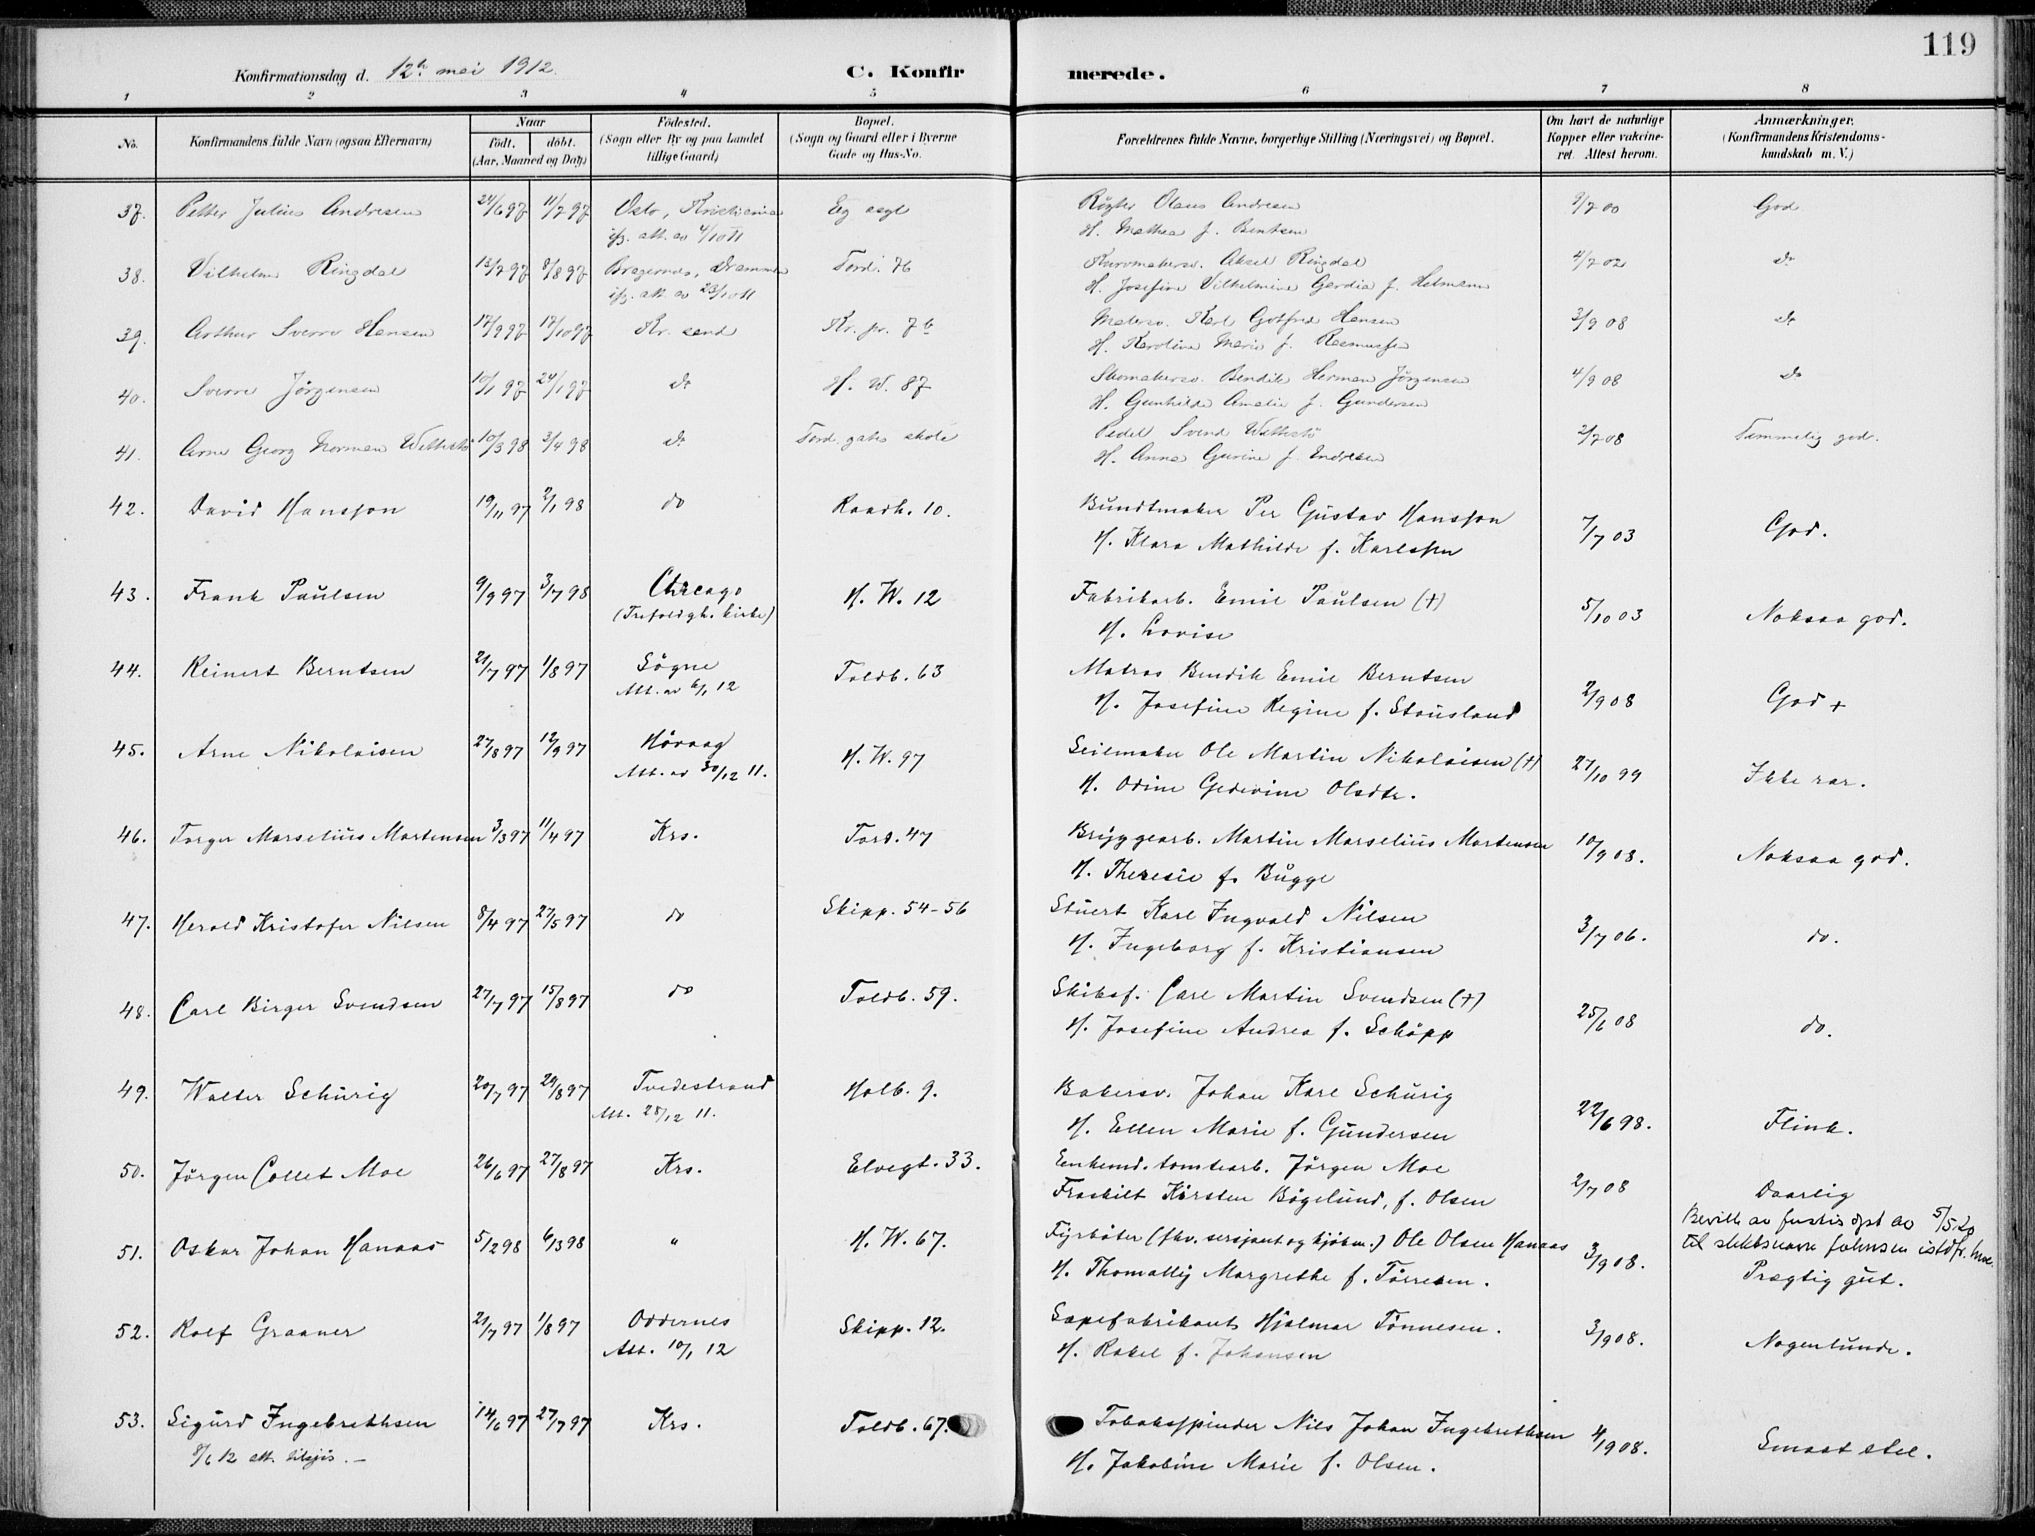 119
Konfirmationsdag d. 12te mei 1912. C. Konfirmerede.
1 2 3 4 5 6 7 8
No. Konfirmandens fulde Navn (ogsaa Efternavn) Naar født. døbt. (Aar, Maaned og Dag) Födested. (Sogn eller By og paa Landet tillige Gaard) Bopæl. (Sogn og Gaard eller i Byerne Gade og Hus-No. Forældrenes fulde Navne, borgerlige Stilling (Næringsvei) og Bopæl. Om havt de naturlige Kopper eller vakcineret. Attest herom. Anmærkninger. (Konfirmandens Kristendomskundskab m. V.)
37. Petter Julius Andresen 24/6 97 11/7 97 Oslo, Kristiania Eg asyl Røgter Olaus Andresen 9/7 00 God
ifg. att. av 4/10 11 H. Mathea f. Bentsen
38. Vilhelm Ringdal 13/7 97 8/8 97 Bragernes, Drammen Tord. 76 Kurvmakersv. Aksel Ringdal 4/7 02 do
ifg. att. av 23/10 11 H. Josefine Vilhelmine Gerdia f. Helmann
39. Arthur Sverre Hansen 17/9 97 17/10 97 Kr. sand Kr. pr. 76 Malersv. Karl Gotfred Hansen 3/9 08 do
H. Karoline Marie f. Rasmussen
40. Sverre Jörgensen 10/1 97 24/1 97 do H. W. 87 Skomakersv. Bendik Herman Jörgensen 4/9 08 do
H. Gunhilde Amalie f. Gundersen
41. Arne Georg Norman Wettestö 10/3 98 3/4 98 do Tord. gates skole Pedel Svend Wettestö 2/7 08 Temmelig god.
H. Anna Gurine f. Endresen
42. David Hansson 19/11 97 2/1 98 do Raadh. 10. Bundtmaker Per Gustav Hansson 7/7 03 God.
H. Klara Mathilde f. Karlsson
43. Frank Paulsen 9/9 97 3/7 98 Chicago H. W. 12 Fabrikarb. Emil Paulsen (†) 5/10 03 Noksaa god.
(Trefoldigh. kirke) H. Lovise
44. Reinert Berntsen 21/7 97 1/8 97 Sögne Toldb. 63 Matros Bendik Emil Berntsen 2/9 08 God +
Att. av 6/1 12 H. Josefine Regine f. Stausland
45. Arne Nikolaisen 27/8 97 12/9 97 Hövaag H. W. 97 Seilmaker Ole Martin Nikolaisen (†) 27/10 99 Ikke rar.
Att. av 30/12 11. H. Odine Gedevine Olsdtr.
46. Torger Marselius Mortensen 3/3 97 11/4 97 Krs. Tord. 47 Bryggearb. Martin Marselius Mortensen 10/9 08. Noksaa god.
H. Theresie f. Bugge
47. Harald Kristofer Nilsen 8/4 97 27/5 97 do Skipp. 54-56 Stuert Karl Ingvald Nilsen 3/7 06. do.
H. Ingeborg f. Kristiansen
48. Carl Birger Svendsen 27/7 97 15/8 97 do Toldb. 59. Skibsf. Carl Martin Svendsen (†) 25/6 08 do.
H. Josefine Andrea f. Schöpp
49. Walter Schürig 20/7 97 29/8 97 Tvedestrand Holb. 9. Bakersv. Johan Karl Schürig 22/6 98. Flink.
Att. 28/12 11. H. Ellen Marie f. Gundersen
50. Jörgen Collet Moe 26/6 97 27/8 97 Krs. Elvegt. 33. Enkemd. tomtearb. Jörgen Moe 2/7 08 Daarlig
Fraskilt Kirsten Bögelund, f. Olsen
Bevill. av justisdpt av 5/5 20 til slektsnavn Johnsen istdf. Moe.
51. Oskar Johan Hanaas 5/2 98 6/3 98 " H. W. 67. Fyrböter (fhv. sersjant og kjöbm.) Ole Olsen Hanaas 3/9 08. Prægtig gut.
H. Thomally Margrethe f. Törresen.
52. Rolf Graaner 21/7 97 1/8 97 Oddernes Skipp. 12. Sæpefabrikant Hjalmar Tönnesen. 3/9 08. Nogenlunde.
Att. 10/1 12 H. Rakel f. Johansen
53. Sigurd Ingebrethsen 14/6 97 27/7 97 Krs. Toldb. 67. Tobakspinder Nils Johan Ingebrethsen 4/9 08. Smaat stel.
8/6 12 att. utsjis. — H. Jakobine Marie f. Olsen.